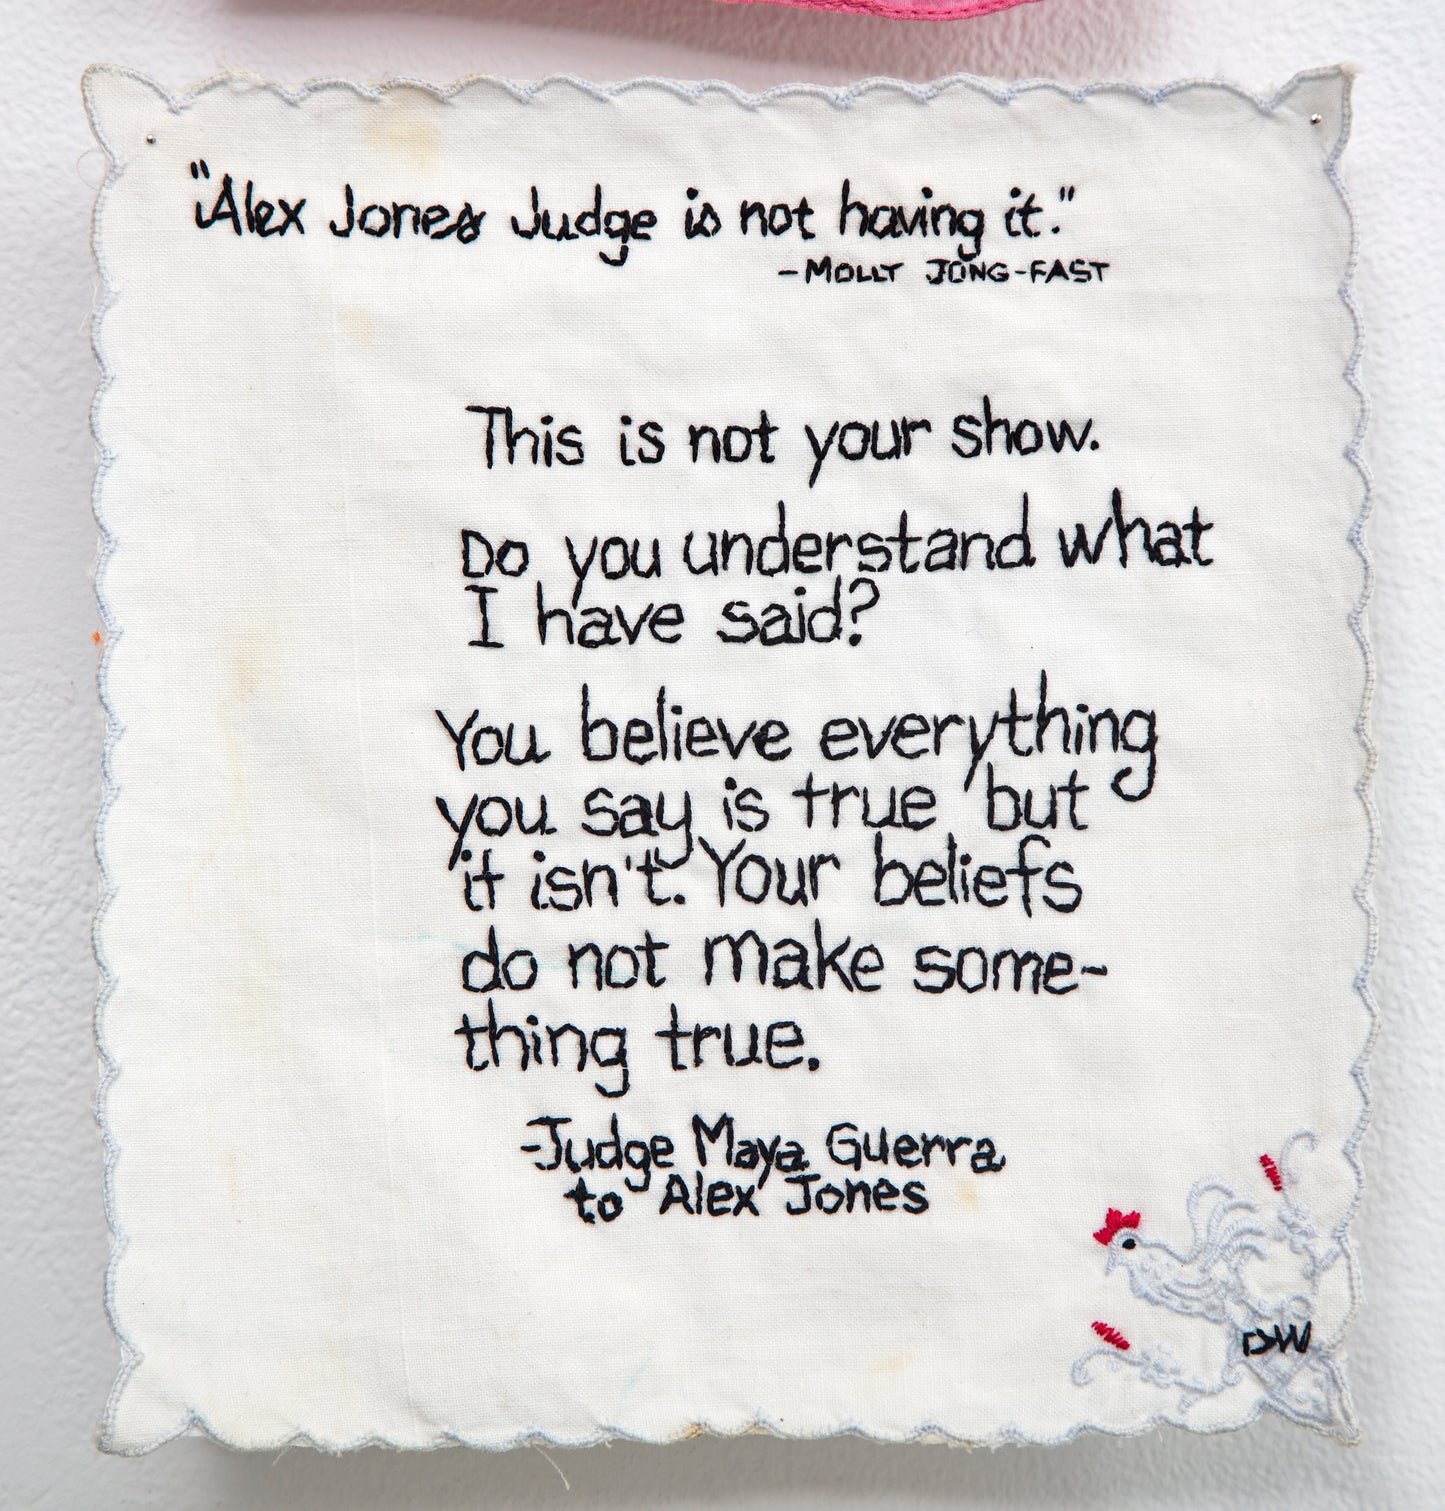 "Alex Jones Judge is not having it."
-MOLLY JONG-FAST
This is not your show.
Do you understand what
I have said?
You believe everything
you say is true but
it isn't. Your beliefs
do not make some-
thing true.
-Judge Maya Guerra
to Alex Jones
DW